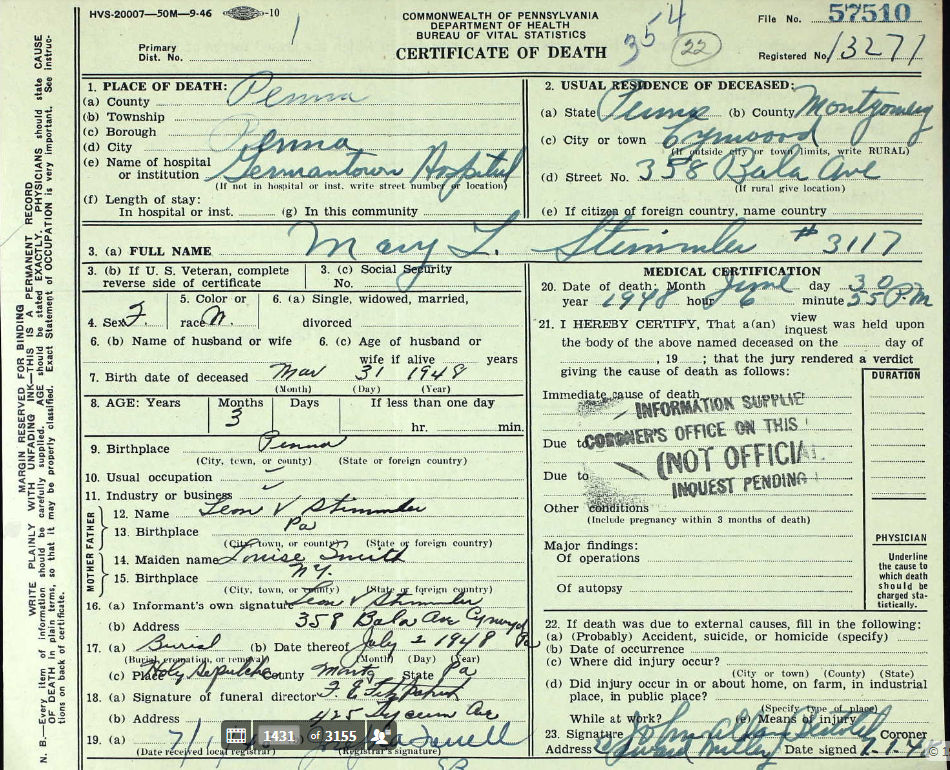 HVS-20007—50M—9-46 -10
COMMONWEALTH OF PENNSYLVANIA
DEPARTMENT OF HEALTH
BUREAU OF VITAL STATISTICS
CERTIFICATE OF DEATH
354
22
File No. 57510
Primary
Dist. No.
Registered No. 13271
1. PLACE OF DEATH:
(a) County Penna
(b) Township
(c) Borough
(d) City Penna
(e) Name of hospital
or institution Germantown Hospital
(If not in hospital or inst. write street number or location)
(f) Length of stay:
In hospital or inst. (g) In this community
2. USUAL RESIDENCE OF DECEASED:
(a) State Penna (b) County Montgomery
(c) City or town Cynwood
(If outside city or town limits, write RURAL)
(d) Street No. 358 Bala Ave
(If rural give location)
(e) If citizen of foreign country, name country
3. (a) FULL NAME Mary L. Stimmler #3117
3. (b) If U. S. Veteran, complete
reverse side of certificate
3. (c) Social Security
No.
4. Sex F.
5. Color or
race W.
6. (a) Single, widowed, married,
divorced
6. (b) Name of husband or wife
6. (c) Age of husband or
wife if alive years
7. Birth date of deceased Mar 31 1948
(Month) (Day) (Year)
8. AGE: Years Months Days If less than one day
3 hr. min.
9. Birthplace Penna
(City, town, or county) (State or foreign country)
10. Usual occupation
11. Industry or business
FATHER
12. Name Leon V Stimmler
13. Birthplace Pa
(City, town, or county) (State or foreign country)
MOTHER
14. Maiden name Louise Smith
15. Birthplace N.Y.
(City, town, or county) (State or foreign country)
16. (a) Informant's own signature Leon V Stimmler
(b) Address 358 Bala Ave Cynwyd Pa
17. (a) Burial (b) Date thereof July 2 1948
(Burial, cremation, or removal) (Month) (Day) (Year)
(c) Place Holy Sepulchre County Montg State Pa
18. (a) Signature of funeral director F. E. Fitzpatrick
(b) Address 425 Lyceum Ave
19. (a) 7/1
(Date received local registrar) (Registrar's signature)
MEDICAL CERTIFICATION
20. Date of death: Month June day 30
year 1948 hour 6 minute 55 P.M
21. I HEREBY CERTIFY, That a(an) view
inquest was held upon
the body of the above named deceased on the day of
, 19 ; that the jury rendered a verdict
giving the cause of death as follows:
DURATION
Immediate cause of death
INFORMATION SUPPLIE
Due to
CORONER'S OFFICE ON THIS
(NOT OFFICIAL
Due to
INQUEST PENDING
Other conditions
(Include pregnancy within 3 months of death)
Major findings:
Of operations
Of autopsy
PHYSICIAN
Underline
the cause to
which death
should be
charged sta-
tistically.
22. If death was due to external causes, fill in the following:
(a) (Probably) Accident, suicide, or homicide (specify)
(b) Date of occurrence
(c) Where did injury occur?
(City or town) (County) (State)
(d) Did injury occur in or about home, on farm, in industrial
place, in public place?
(Specify type of place)
While at work? (e) Means of injury
23. Signature Coroner
Address Date signed 7-1-48
1431 of 3155
MARGIN RESERVED FOR BINDING
WRITE PLAINLY WITH UNFADING INK—THIS IS A PERMANENT RECORD
N. B.—Every item of information should be carefully supplied. AGE should be stated EXACTLY. PHYSICIANS should state CAUSE
OF DEATH in plain terms, so that it may be properly classified. Exact Statement of OCCUPATION is very important. See instruc-
tions on back of certificate.